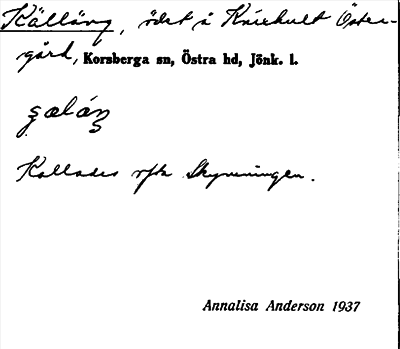 Källäng, ödet å Kniehult Öster-
gård, Korsberga sn, Östra hd, Jönk. l.
Kallades ofta Skymningen.
Annalisa Anderson 1937